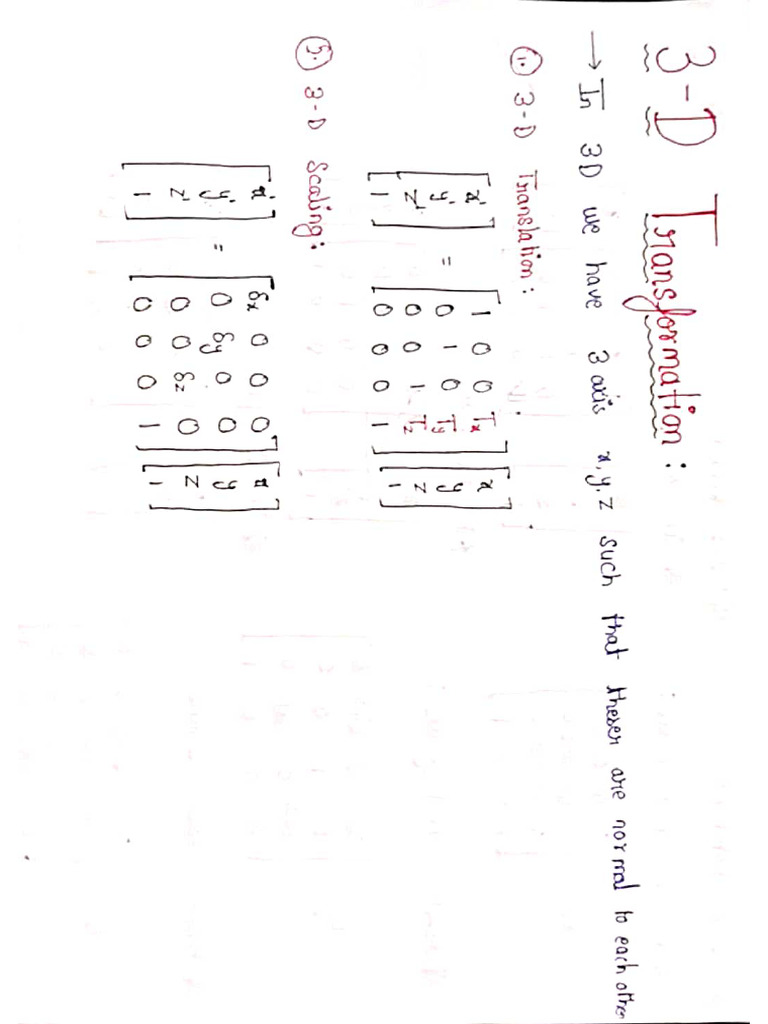 3-D Transformation:
→ In 3D we have 3 axis x, y, z such that theser are normal to each other
1. 3-D Translation:
[x' y' z' 1] = [1 0 0 Tx
0 1 0 Ty
0 0 1 Tz
0 0 0 1] [x y z 1]
5. 3-D Scaling:
[x' y' z' 1] = [Sx 0 0 0
0 Sy 0 0
0 0 Sz 0
0 0 0 1] [x y z 1]